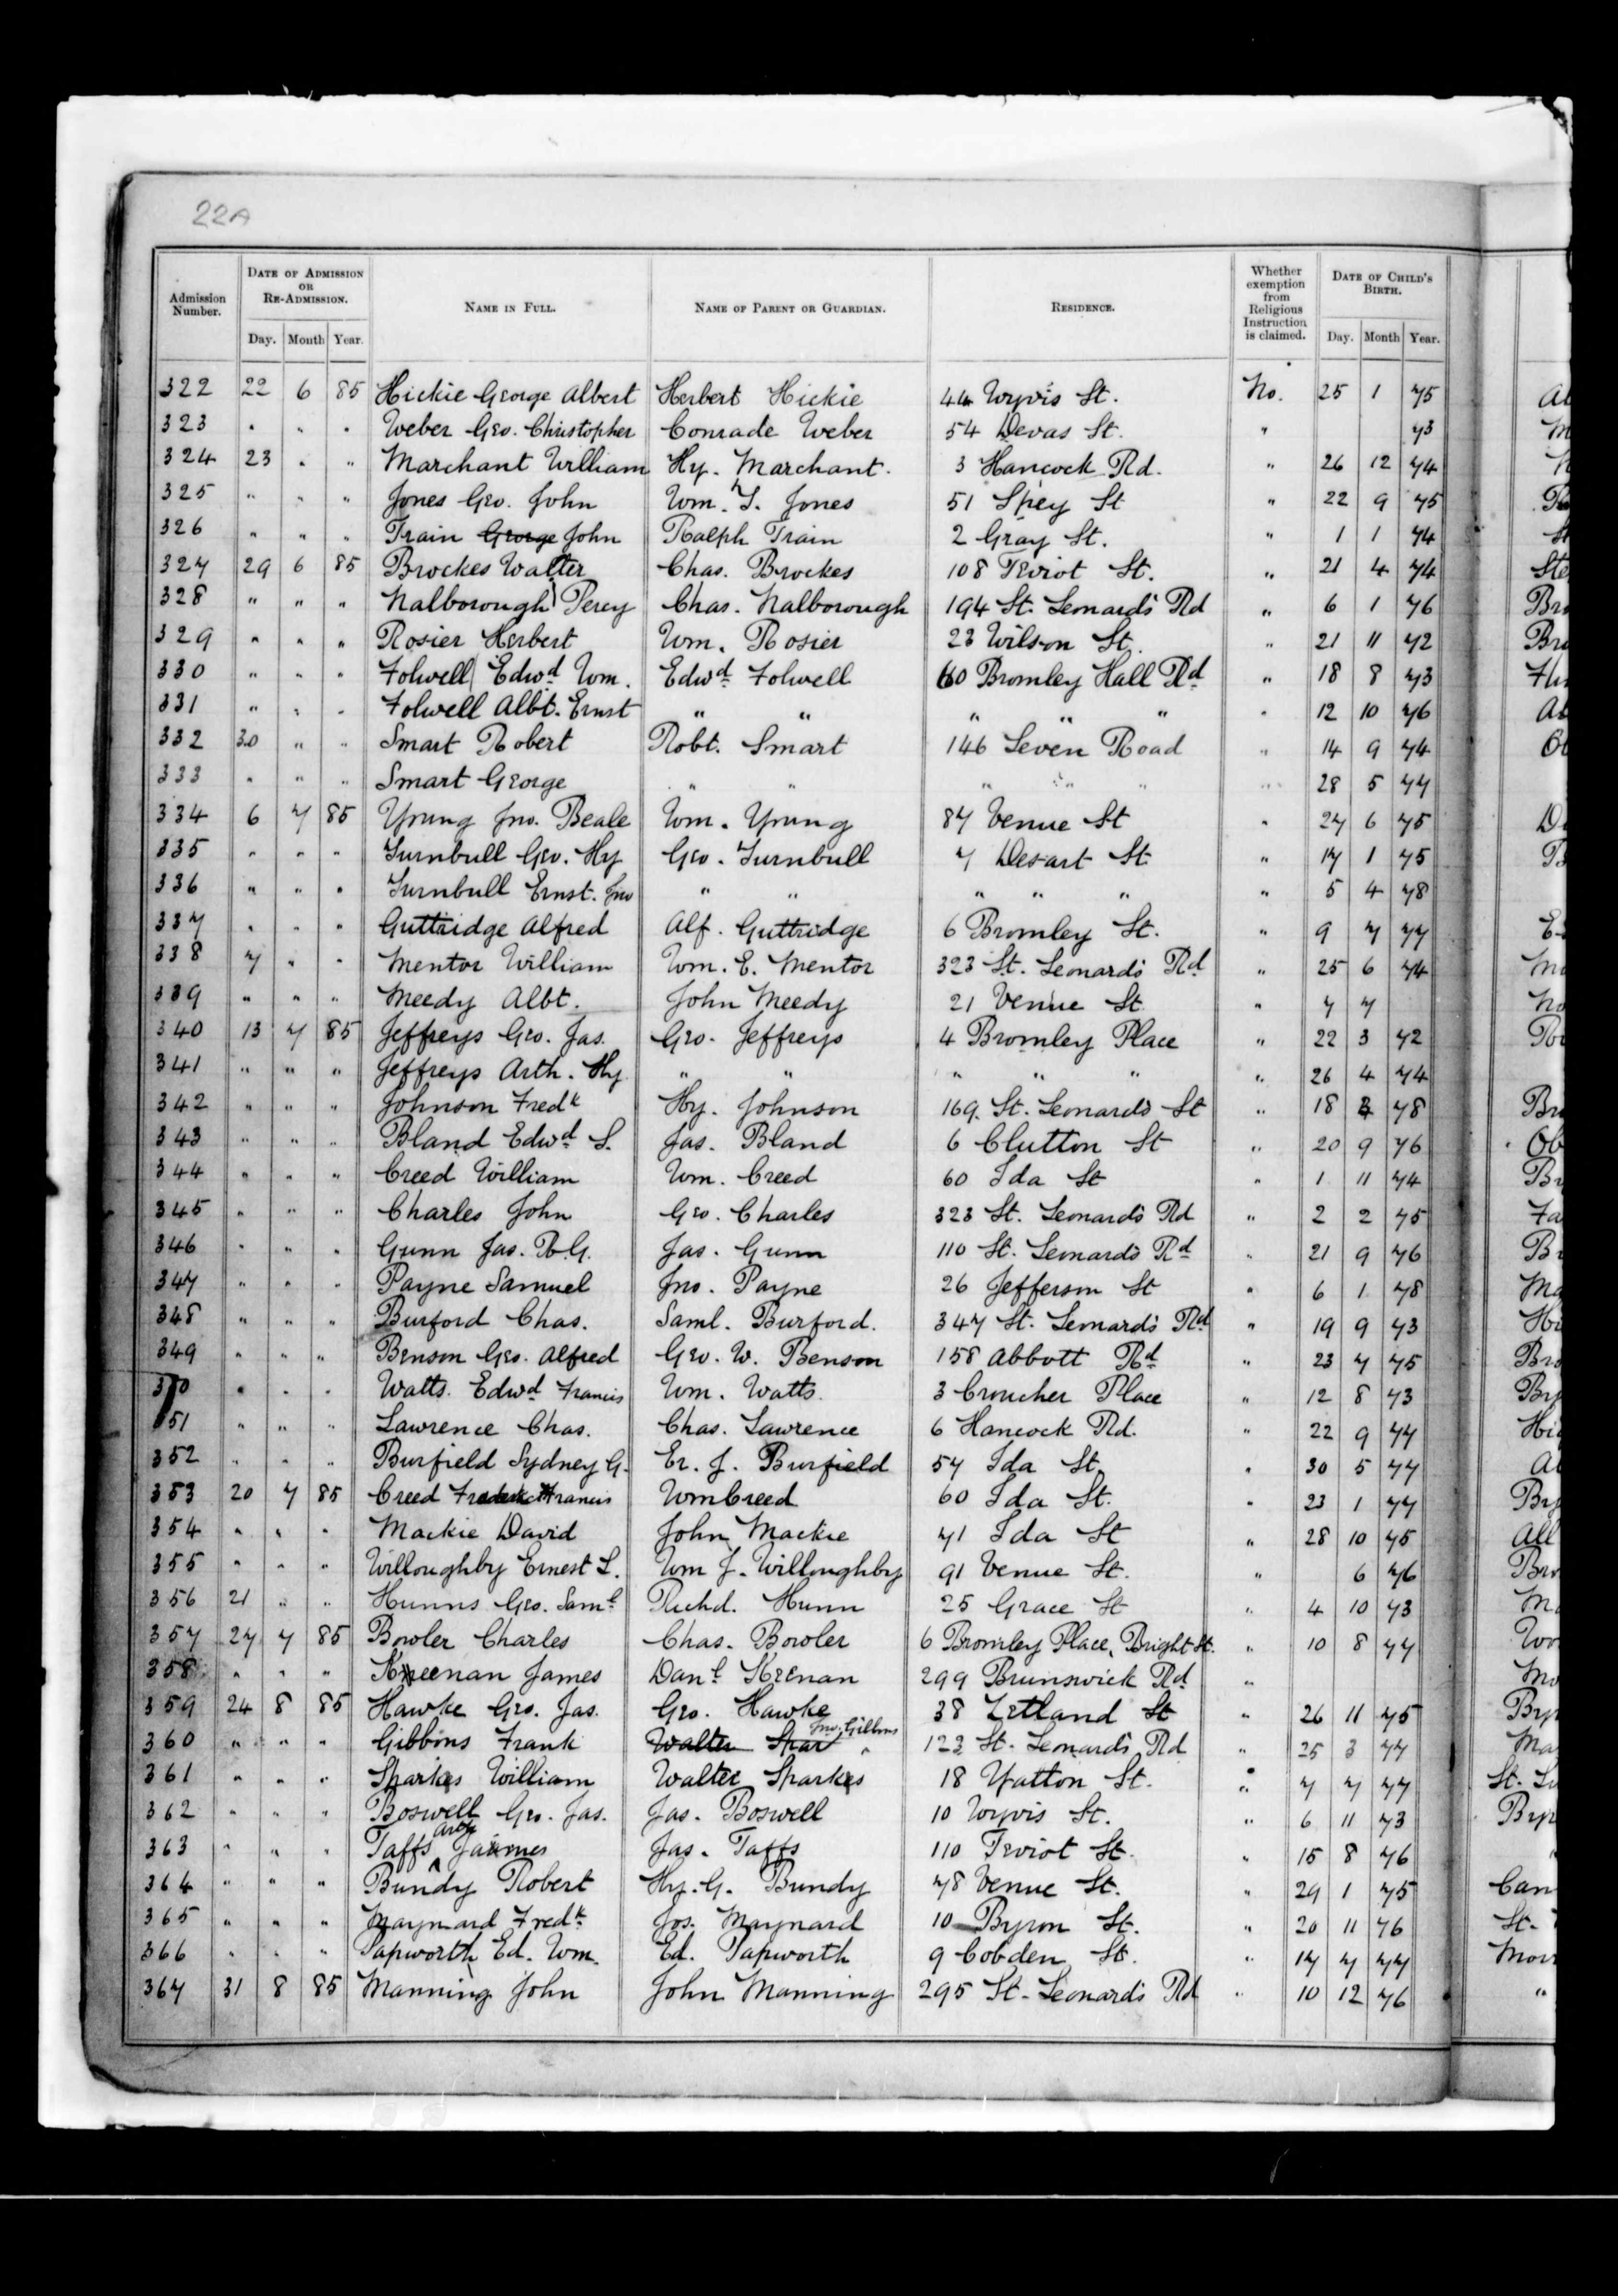 22A
Admission Number. DATE OF ADMISSION OR RE-ADMISSION. Day. Month Year. NAME IN FULL. NAME OF PARENT OR GUARDIAN. RESIDENCE. Whether exemption from Religious Instruction is claimed. DATE OF CHILD'S BIRTH. Day. Month Year.
322 22 6 85 Hickie George Albert Herbert Hickie 44 Wyvis St. No. 25 1 75
323 " " " Weber Geo. Christopher Conrade Weber 54 Devas St. " 73
324 23 " " Marchant William Hy. Marchant. 3 Hancock Rd. " 26 12 74
325 " " " Jones Geo. John Wm. T. Jones 51 Spey St " 22 9 75
326 " " " Train George John Ralph Train 2 Gray St. " 1 1 74
327 29 6 85 Brockes Walter Chas. Brockes 108 Teviot St. " 21 4 74
328 " " " Nalborough Percy Chas. Nalborough 194 St. Leonards Rd " 6 1 76
329 " " " Rosier Herbert Wm. Rosier 23 Wilson St. " 21 11 72
330 " " " Folwell Edwd Wm. Edwd Folwell 60 Bromley Hall Rd " 18 8 73
331 " " " Folwell Albt. Ernst " " " " " " 12 10 76
332 30 " " Smart Robert Robt. Smart 146 Leven Road " 14 9 74
333 " " " Smart George " " " " " " 28 5 77
334 6 7 85 Young Jno. Beale Wm. Young 87 Venue St " 27 6 75
335 " " " Turnbull Geo. Hy Geo. Turnbull 7 Desart St " 17 1 75
336 " " " Turnbull Ernst. Jno " " " " " " 5 4 78
337 " " " Guttridge Alfred Alf. Guttridge 6 Bromley St. " 9 7 77
338 7 " " Mentor William Wm. E. Mentor 323 St. Leonards Rd " 25 6 74
339 " " " Meedy Albt. John Meedy 21 Venue St " 7 7
340 13 7 85 Jeffreys Geo. Jas. Geo. Jeffreys 4 Bromley Place " 22 3 72
341 " " " Jeffreys Arth. Hy " " " " " " 26 4 74
342 " " " Johnson Fredk Hy. Johnson 169 St. Leonards St " 18 78
343 " " " Bland Edwd S. Jas. Bland 6 Clutton St " 20 9 76
344 " " " Creed William Wm. Creed 60 Ida St " 1 11 74
345 " " " Charles John Geo. Charles 323 St. Leonards Rd " 2 2 75
346 " " " Gunn Jas. R.G. Jas. Gunn 110 St. Leonards Rd " 21 9 76
347 " " " Payne Samuel Jno. Payne 26 Jefferson St " 6 1 78
348 " " " Burford Chas. Saml. Burford. 347 St. Leonards Rd " 19 9 73
349 " " " Benson Geo. Alfred Geo. W. Benson 158 Abbott Rd " 23 7 75
" " " Watts. Edwd Francis Wm. Watts. 3 Croucher Place " 12 8 73
51 " " " Lawrence Chas. Chas. Lawrence 6 Hancock Rd. " 22 9 77
352 " " " Burfield Sydney G. Er. J. Burfield 57 Ida St " 30 5 77
353 20 7 85 Creed Frederick Francis Wm Creed 60 Ida St. " 23 1 77
354 " " " Mackie David John Mackie 71 Ida St " 28 10 75
355 " " " Willoughby Ernest L. Wm J. Willoughby 91 Venue St. " 6 76
356 21 " " Hunns Geo. Saml Richd. Hunn 25 Grace St " 4 10 73
357 27 7 85 Bowler Charles Chas. Bowler 6 Bromley Place, Bright St. " 10 8 77
358 " " " Keenan James Danl Keenan 299 Brunswick Rd "
359 24 8 85 Hawke Geo. Jas. Geo. Hawke 38 Zetland St " 26 11 75
360 " " " Gibbons Frank Walter Spar Jno. Gibbons 123 St. Leonards Rd " 25 3 77
361 " " " Sparkes William Walter Sparkes 18 Yatton St. " 7 7 77
362 " " " Boswell Geo. Jas. Jas. Boswell 10 Wyvis St. " 6 11 73
363 " " " Taffs James Jas. Taffs 110 Teviot St. " 15 8 76
364 " " " Bundy Robert Hy. G. Bundy 78 Venue St. " 29 1 75
365 " " " Maynard Fredk Jos. Maynard 10 Byron St. " 20 11 76
366 " " " Papworth Ed. Wm. Ed. Papworth 9 Cobden St. " 17 7 77
367 31 8 85 Manning John John Manning 295 St. Leonards Rd " 10 12 76